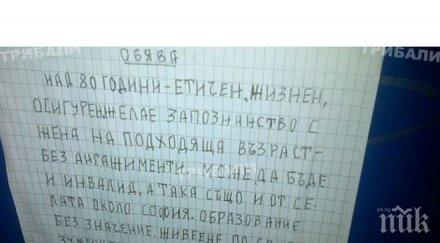 ТРИБАЛИ
ТРИБАЛИ
ОБЯВА
НАД 80 ГОДИНИ-ЕТИЧЕН, ЖИЗНЕН,
ОСИГУРЕН ЖЕЛАЕ ЗАПОЗНАНСТВО С
ЖЕНА НА ПОДХОДЯЩА ВЪЗРАСТ-
БЕЗ АНГАЖИМЕНТИ. МОЖЕ ДА БЪДЕ
И ИНВАЛИД, А ТАКА СЪЩО И ОТ СЕ-
ЛАТА ОКОЛО СОФИЯ. ОБРАЗОВАНИЕ
БЕЗ ЗНАЧЕНИЕ. ЖИВЕЕНЕ
ПИК